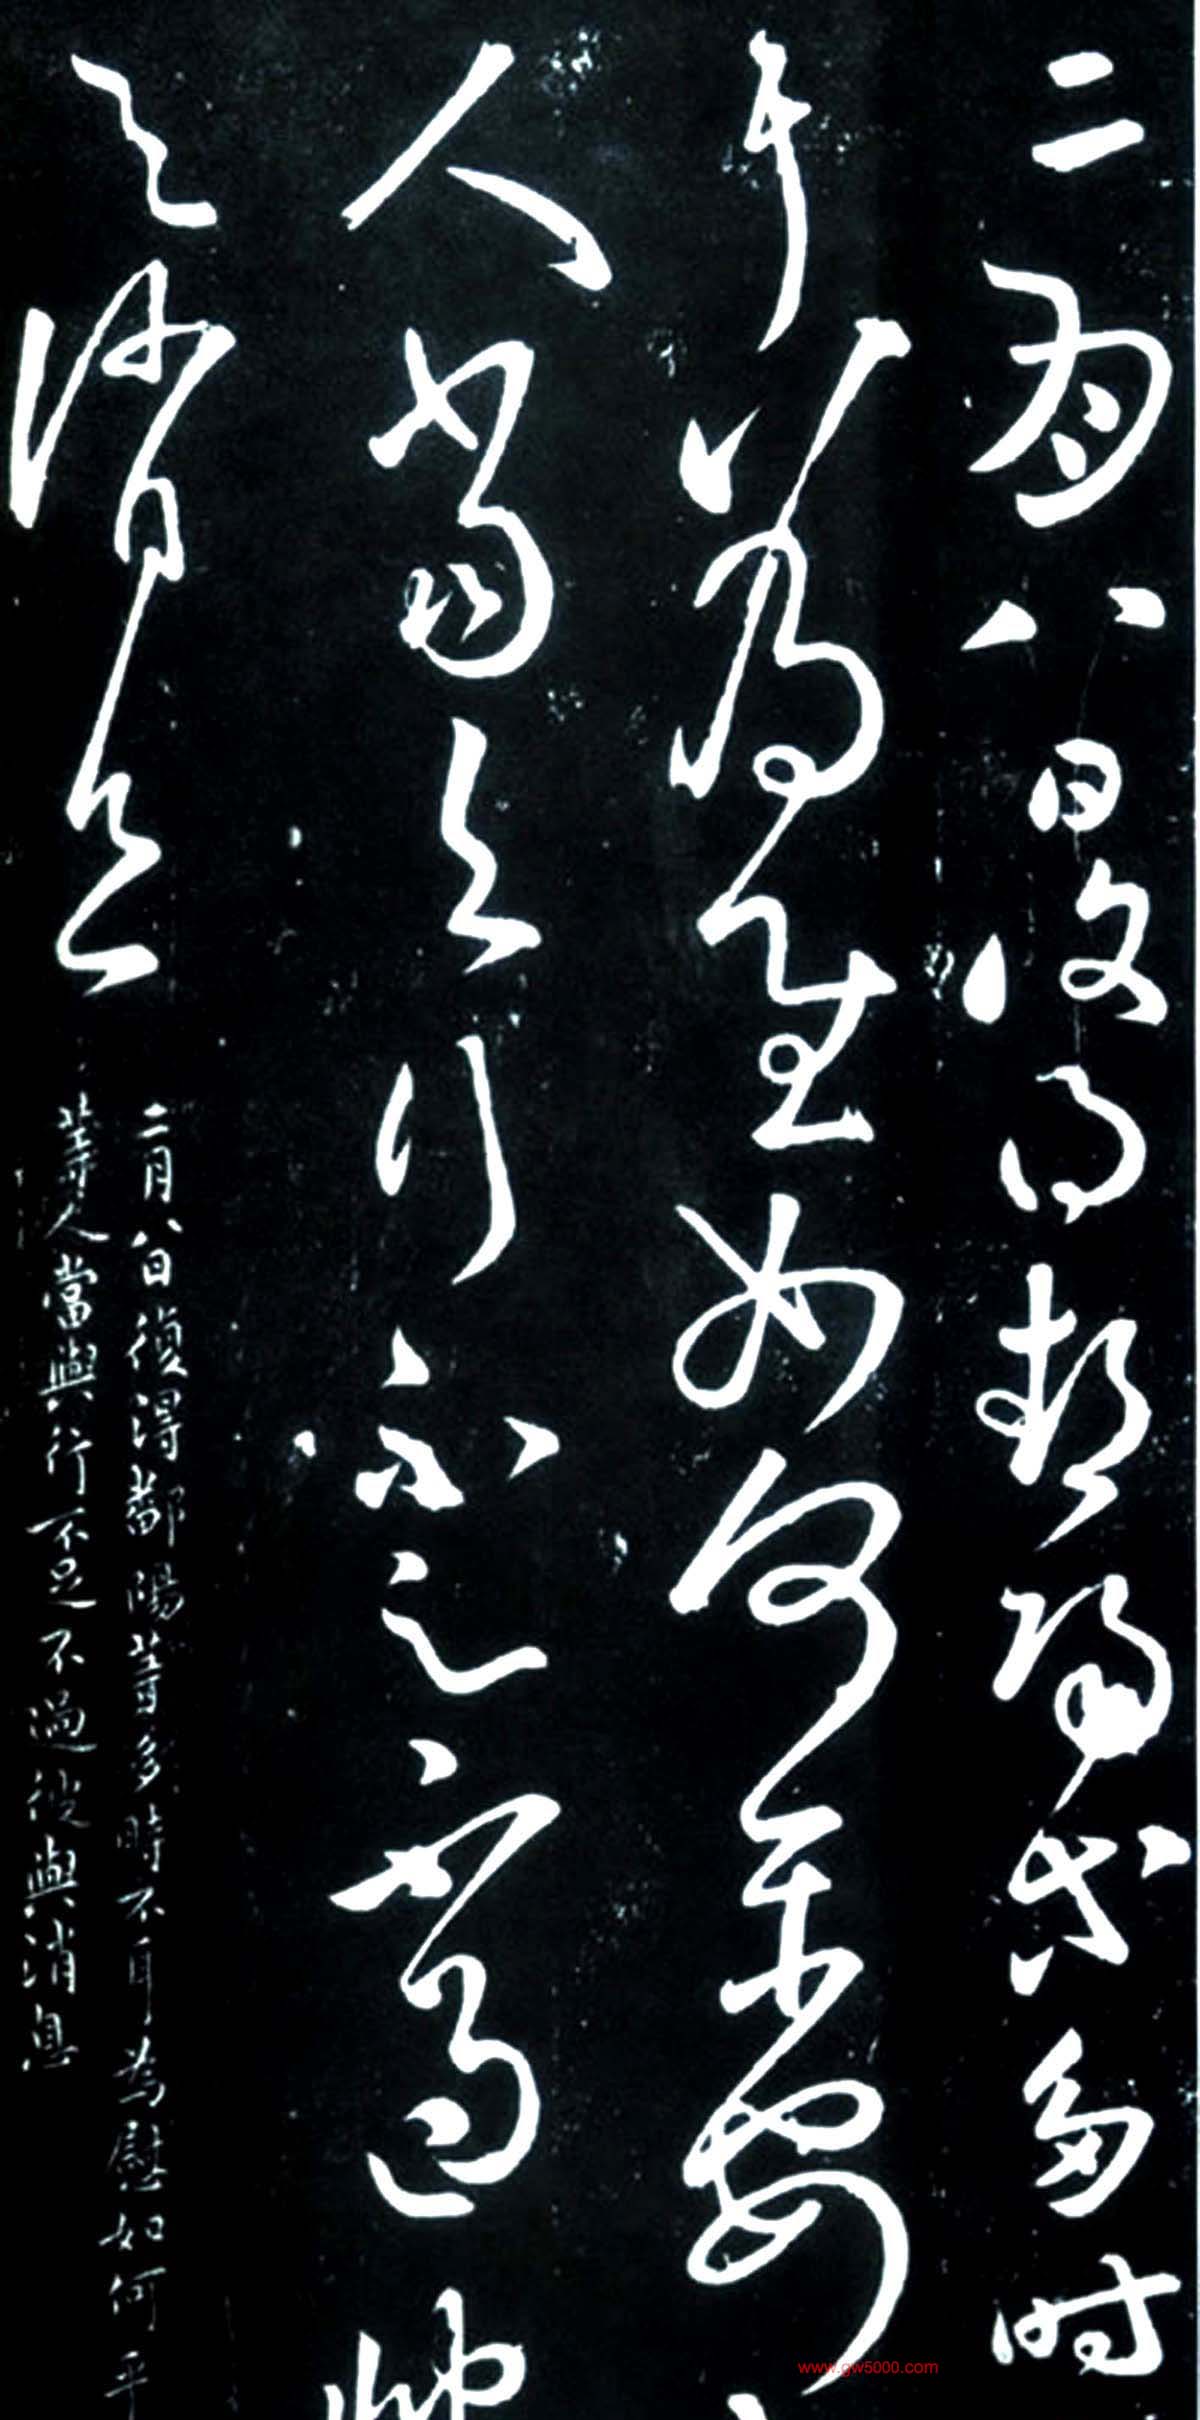 二月八日復得鄱陽等多時
耳為慰如何平安
人當與行不足不過彼
與消息
二月八日復得鄱陽等多時不耳為慰如何平
等人當與行不足不過彼與消息
www.gw5000.com